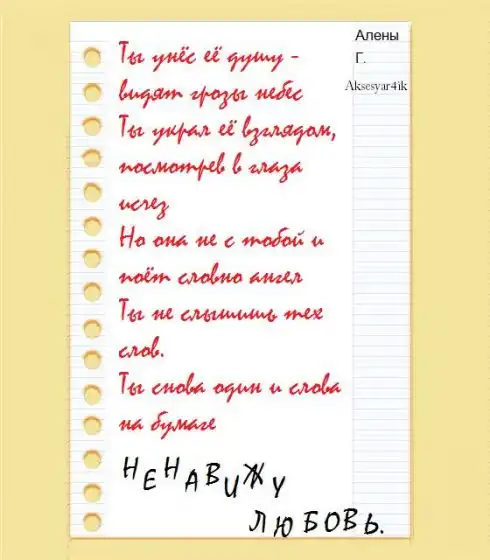 Алены
Г.
Aksesyar4ik
Ты унёс её душу -
видят грозы небес
Ты украл её взглядом,
посмотрев в глаза
исчез
Но она не с тобой и
поёт словно ангел
Ты не слышишь тех
слов.
Ты снова один и слова
на бумаге
НЕНАВИЖУ
ЛЮБОВЬ.